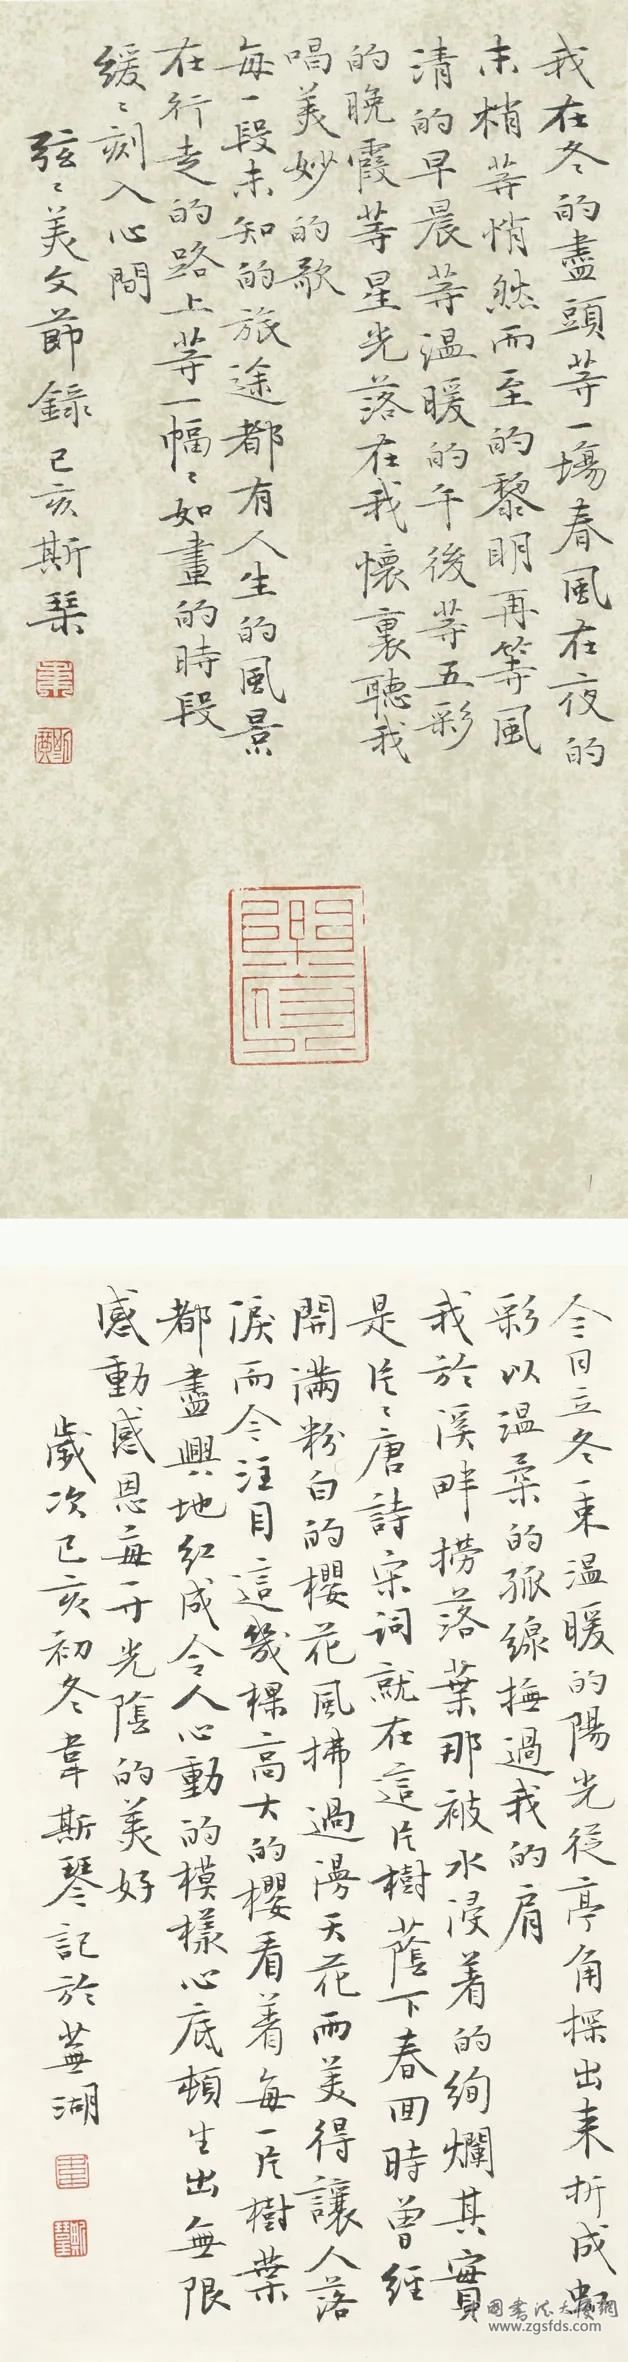 我在冬的盡頭等一場春風在夜的
末梢等悄然而至的黎明再等風
清的早晨等溫暖的午後等五彩
的晚霞等星光落在我懷裏聽我
唱美妙的歌
每一段未知的旅途都有人生的風景
在行走的路上等一幅〻如畫的時段
緩〻刻入心間
弦〻美文節錄己亥斯琴
今日立冬一束温暖的陽光從亭角探出來折成虹
彩以温柔的弧線撫過我的肩
我於溪畔撈落葉那被水浸着的絢爛其實
是片〻唐詩宋詞就在這片樹蔭下春回時曾經
開滿粉白的櫻花風拂過漫天花雨美得讓人落
淚而今注目這幾棵高大的櫻看着每一片樹葉
都盡興地紅成令人心動的模樣心底頓生出無限
感動感恩每寸光陰的美好
歲次己亥初冬韋斯琴記於蕪湖
中国书法大厦網
www.zgsfds.com